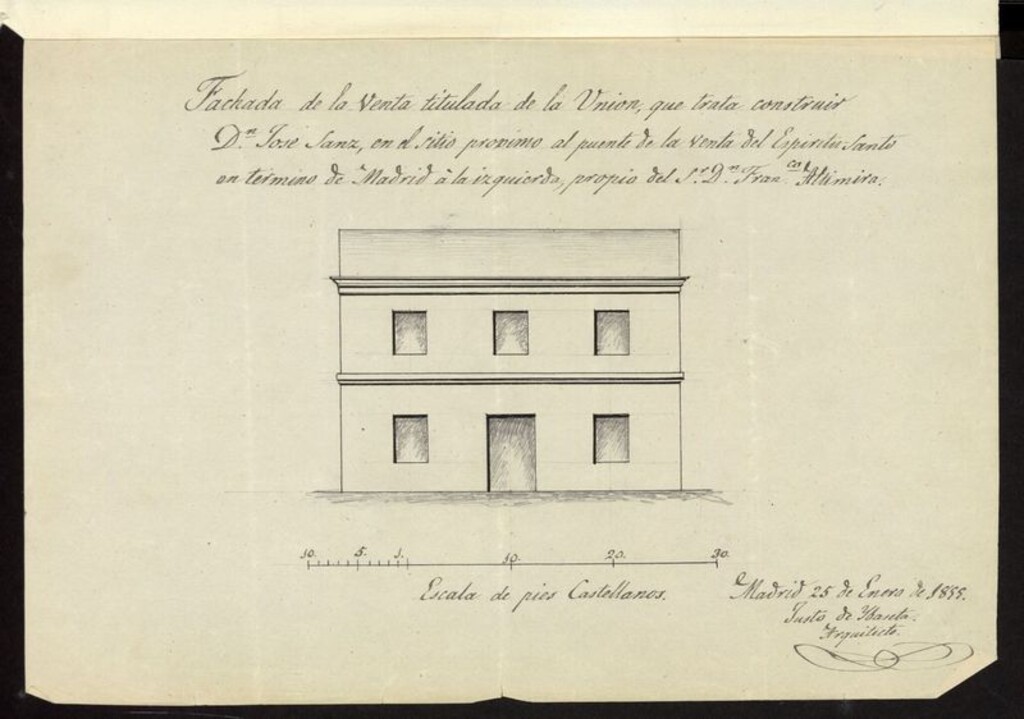 Fachada de la Venta titulada de la Union, que trata construir
D.n José Sanz, en el sitio proximo al puente de la venta del Espiritu Santo
en termino de Madrid á la izquierda, propio del S.r D.n Fran.co Altimira.
10. 5. 1. 10. 20. 30.
Escala de pies Castellanos.
Madrid 25 de Enero de 1855.
Justo de
Arquitecto.